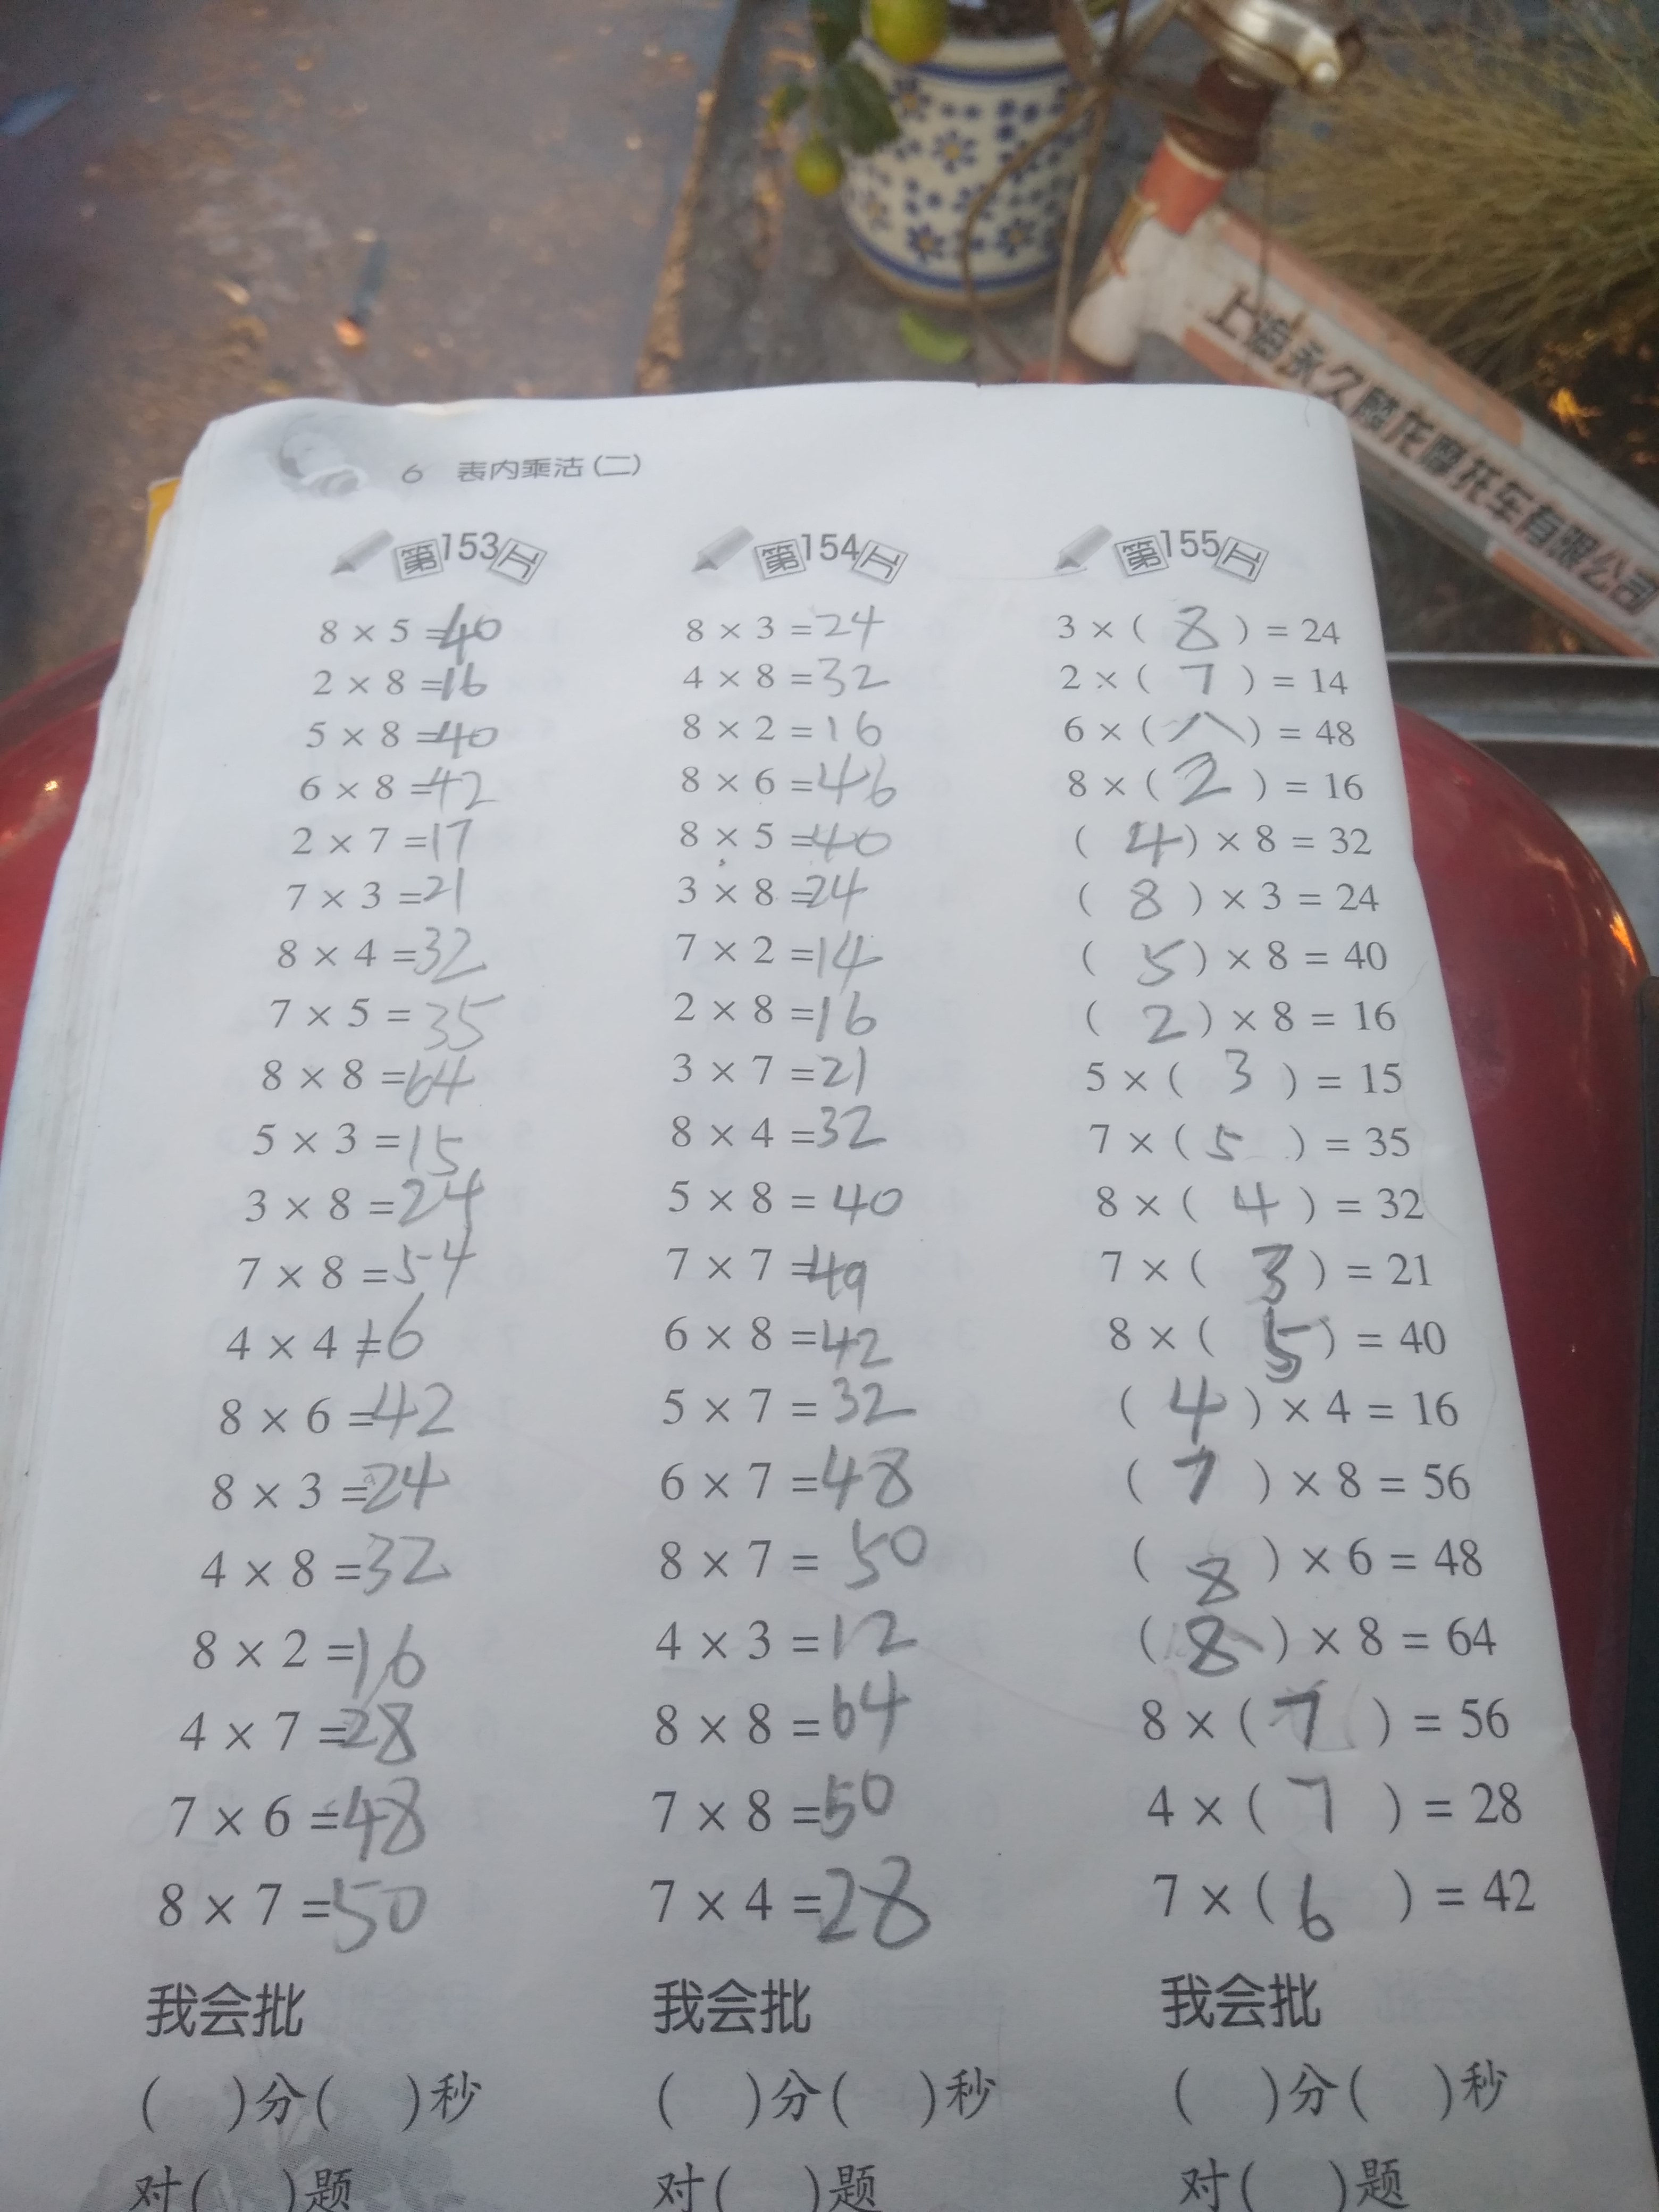 上海永久麟龙摩托车有限公司
6 表内乘法(二)
第153天
8 × 5 =40
2 × 8 =16
5 × 8 =40
6 × 8 =42
2 × 7 =17
7 × 3 =21
8 × 4 =32
7 × 5 =35
8 × 8 =64
5 × 3 =15
3 × 8 =24
7 × 8 =54
4 × 4 =16
8 × 6 =42
8 × 3 =24
4 × 8 =32
8 × 2 =16
4 × 7 =28
7 × 6 =48
8 × 7 =50
我会批
( )分( )秒
对( )题
第154天
8 × 3 =24
4 × 8 =32
8 × 2 =16
8 × 6 =46
8 × 5 =40
3 × 8 =24
7 × 2 =14
2 × 8 =16
3 × 7 =21
8 × 4 =32
5 × 8 =40
7 × 7 =49
6 × 8 =42
5 × 7 =32
6 × 7 =48
8 × 7 =50
4 × 3 =12
8 × 8 =64
7 × 8 =50
7 × 4 =28
我会批
( )分( )秒
对( )题
第155天
3 × ( 8 ) = 24
2 × ( 7 ) = 14
6 × ( 八 ) = 48
8 × ( 2 ) = 16
( 4 ) × 8 = 32
( 8 ) × 3 = 24
( 5 ) × 8 = 40
( 2 ) × 8 = 16
5 × ( 3 ) = 15
7 × ( 5 ) = 35
8 × ( 4 ) = 32
7 × ( 3 ) = 21
8 × ( 5 ) = 40
( 4 ) × 4 = 16
( 7 ) × 8 = 56
( 8 ) × 6 = 48
( 8 ) × 8 = 64
8 × ( 7 ) = 56
4 × ( 7 ) = 28
7 × ( 6 ) = 42
我会批
( )分( )秒
对( )题